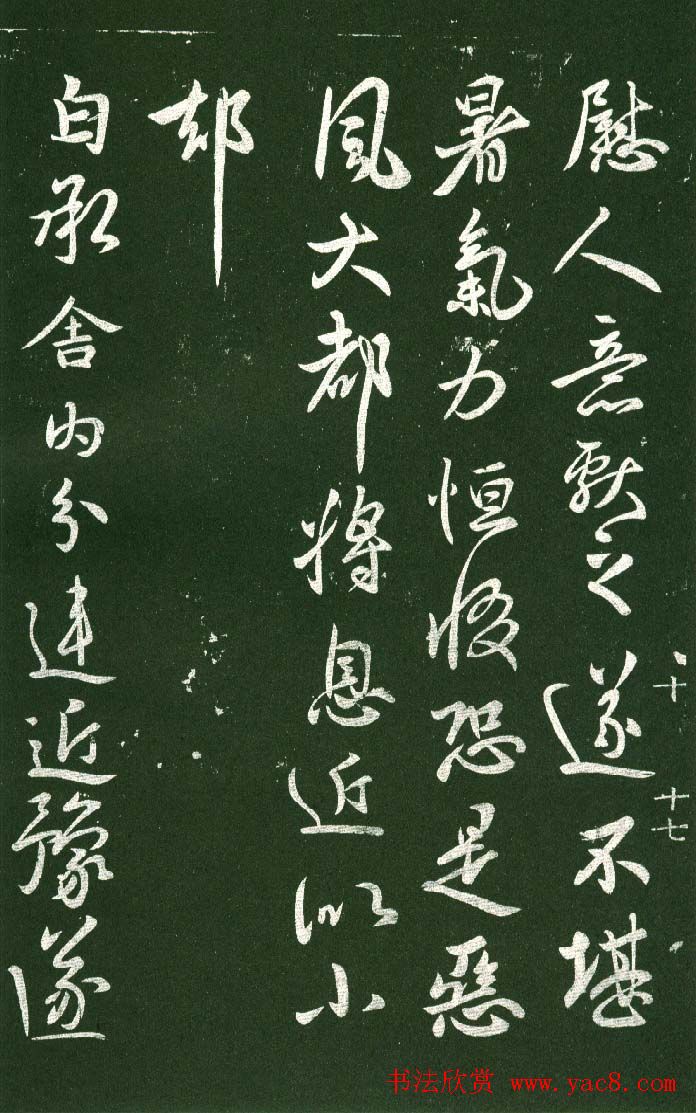 慰人意獻之遂不堪
暑氣力恒惙恐是惡
風大都將息近似小
却
自承舍內分違近豫遂
十 十七
书法欣赏 www.yac8.com